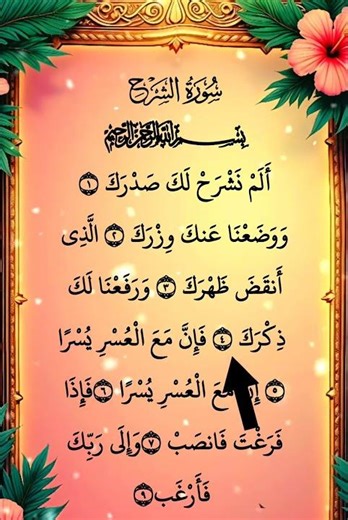 سُورَةُ الشَّرْحِ
بِسْمِ اللَّهِ الرَّحْمَٰنِ الرَّحِيمِ
أَلَمْ نَشْرَحْ لَكَ صَدْرَكَ ١
وَوَضَعْنَا عَنكَ وِزْرَكَ ٢ الَّذِى
أَنقَضَ ظَهْرَكَ ٣ وَرَفَعْنَا لَكَ
ذِكْرَكَ ٤ فَإِنَّ مَعَ الْعُسْرِ يُسْرًا
٥ مَعَ الْعُسْرِ يُسْرًا ٦ فَإِذَا
فَرَغْتَ فَانصَبْ ٧ وَإِلَى رَبِّكَ
فَأَرْغَب ٩